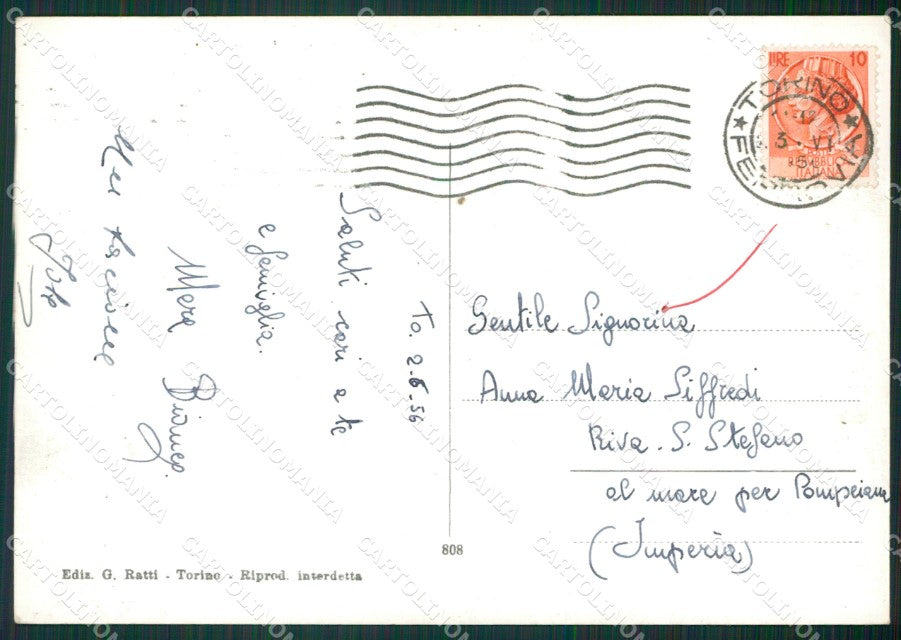 LIRE 10
REPUBBLICA
ITALIANA
TORINO
FERROVIA
3. VI
To. 2.6.56
Saluti cari a te
e famiglia.
Mera
Un bacione
Gentile Signorina
Anna Maria Siffredi
Riva. S. Stefano
al mare per Pompeiana
(Imperia)
808
Ediz. G. Ratti - Torino - Riprod. interdetta
CARTOLINOMANIA